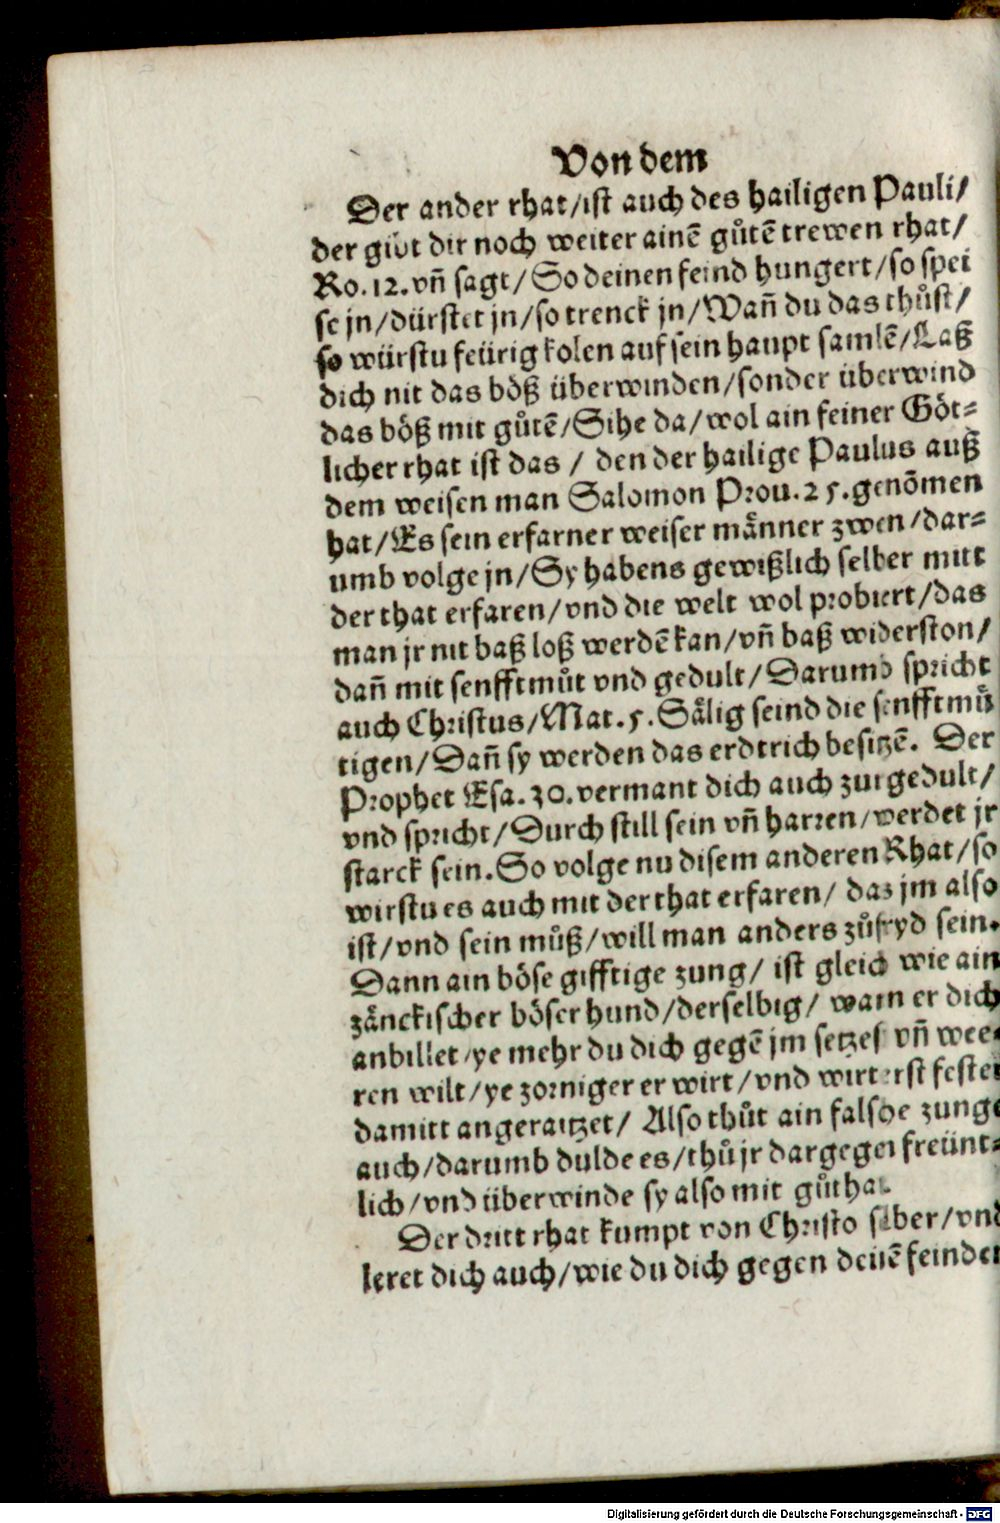 Von dem
Der ander rhat/ist auch des hailigen Pauli/
der gibt dir noch weiter ainē gůtē trewen rhat/
Ro.12.vñ sagt/So deinen feind hungert/so spei
se jn/dürstet jn/so trenck jn/Wañ du das thůst/
so würstu feürig kolen auf sein haupt samlē/Laß
dich nit das böß überwinden/sonder überwind
das böß mit gůtē/Sihe da/wol ain feiner Göt⸗
licher rhat ist das / den der hailige Paulus auß
dem weisen man Salomon Prou.25.genōmen
hat/Es sein erfarner weiser mäñer zwen/dar⸗
umb volge jn/Sy habens gewißlich selber mitt
der that erfaren/vnd die welt wol probiert/das
man jr nit baß loß werdē kan/vñ baß widerston/
dañ mit senfftmůt vnd gedult/Darumb spricht
auch Christus/Mat.5.Sälig seind die senfftmů
tigen/Dañ sy werden das erdtrich besitzē. Der
Prophet Esa.30.vermant dich auch zur gedult/
vnd spricht/Durch still sein vñ harren/werdet jr
starck sein.So volge nu disem anderen Rhat/so
wirstu es auch mit der that erfaren/ das jm also
ist/vnd sein můß/will man anders zůfryd sein.
Dann ain böse gifftige zung/ ist gleich wie ain
zänckischer böser hund/derselbig/ wann er dich
anbillet/ye mehr du dich gegē jm setzest vñ wee⸗
ren wilt/ye zorniger er wirt/vnd wirt erst fester
damitt angeraitzet/ Also thůt ain falsche zunge
auch/darumb dulde es/thů jr dargegen freünt⸗
lich/vnd überwinde sy also mit gůthat.
Der dritt rhat kumpt von Christo selber/vnd
leret dich auch/wie du dich gegen deinē feinden
Digitalisierung gefördert durch die Deutsche Forschungsgemeinschaft - DFG